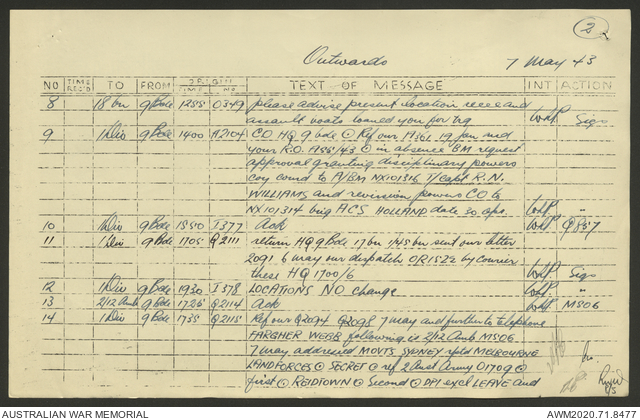 2
Outwards 7 May 43
NO TIME REC'D TO FROM ORIGIN TIME NO TEXT OF MESSAGE INT ACTION
8 18 bn 9 Bde 1255 O349 please advise present location recce and
assault boats loaned you for trg WHP Sigs
9 1 Div 9 Bde 1400 A2104 CO HQ 9 bde ⊙ Ref our 19 Jan and
your R.O. A55/43 ⊙ in absence BM request
approval granting disciplinary powers
coy comd to A/BM NX101316 T/Capt R.N.
WILLIAMS and revisionary powers CO to
NX101314 brig ACS HOLLAND date 30 apr. WHP "
10 1 Div 9 Bde 1550 I377 Ack WHP
11 1 Div 9 Bde 1705 Q2111 return HQ 9 Bde 17 bn 1/45 bn sent our letter
2091 6 may our despatch OR1522 by courier
these HQ 1700/6 WHP Sigs
12 1 Div 9 Bde 1930 I378 LOCATIONS NO change WHP "
13 2/12 Amb 9 Bde 1725 Q2114 Ack WHP MS06
14 1 Div 9 Bde 1735 Q2115 Ref our Q2094 Q2098 7 may and further to telephone
FARGHER WEBB following is 2/12 Amb MS06
7 may addressed MOVTS SYDNEY rptd MELBOURNE
LANDFORCES ⊙ SECRET ⊙ ref 2 Aust Army O1709 ⊙
first ⊙ REIDTOWN ⊙ Second ⊙ DP1 excl LEAVE and
AUSTRALIAN WAR MEMORIAL AWM2020.71.8477